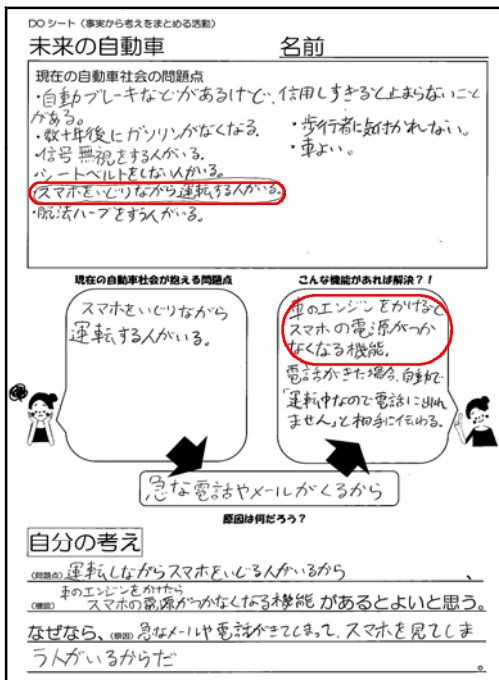 DO シート（事実から考えをまとめる活動）
未来の自動車 名前
現在の自動車社会の問題点
・自動ブレーキなどがあるけど、信用しすぎると止まらないこと
がある。
・数十年後にガソリンがなくなる。 ・歩行者に気付かれない。
・信号無視をする人がいる。 ・車よい。
・シートベルトをしない人がいる。
・スマホをいじりながら運転する人がいる。
・脱法ハーブをすう人がいる。
現在の自動車社会が抱える問題点 こんな機能があれば解決？！
スマホをいじりながら
運転する人がいる。
車のエンジンをかけると
スマホの電源がつか
なくなる機能.
電話がきた場合、自動で
「運転中なので電話に出れ
ません」と相手に伝わる。
急な電話やメールがくるから
原因は何だろう？
自分の考え
（問題点）運転しながらスマホをいじる人がいるから 、
車のエンジンをかけたら
（機能）スマホの電源がつかなくなる機能 があるとよいと思う。
なぜなら、（原因）急なメールや電話がきてしまって、スマホを見てしま
う人がいるからだ 。